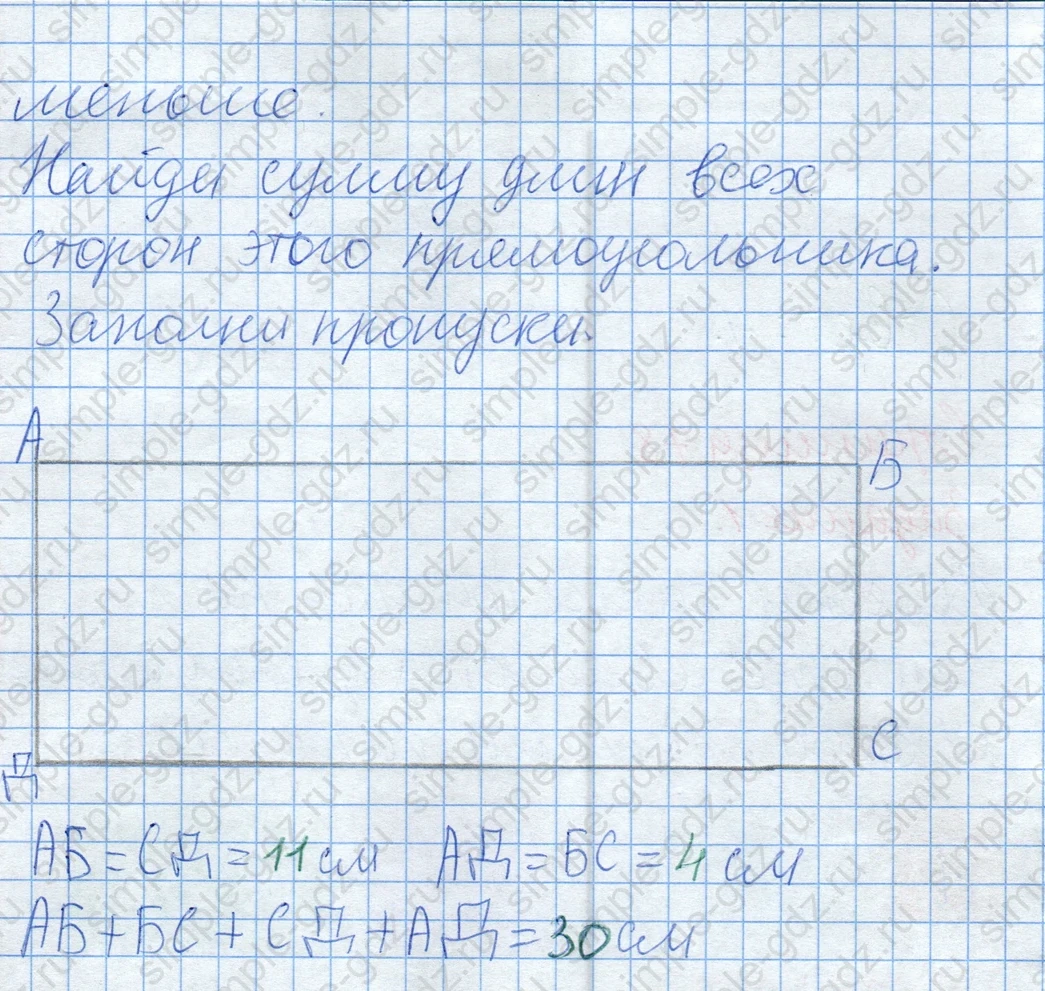 меньше.
Найди сумму длин всех
сторон этого прямоугольника.
Заполни пропуски.
А
Б
Д
С
АБ = СД = 11 см АД = БС = 4 см
АБ + БС + СД + АД = 30 см
simple-gdz.ru